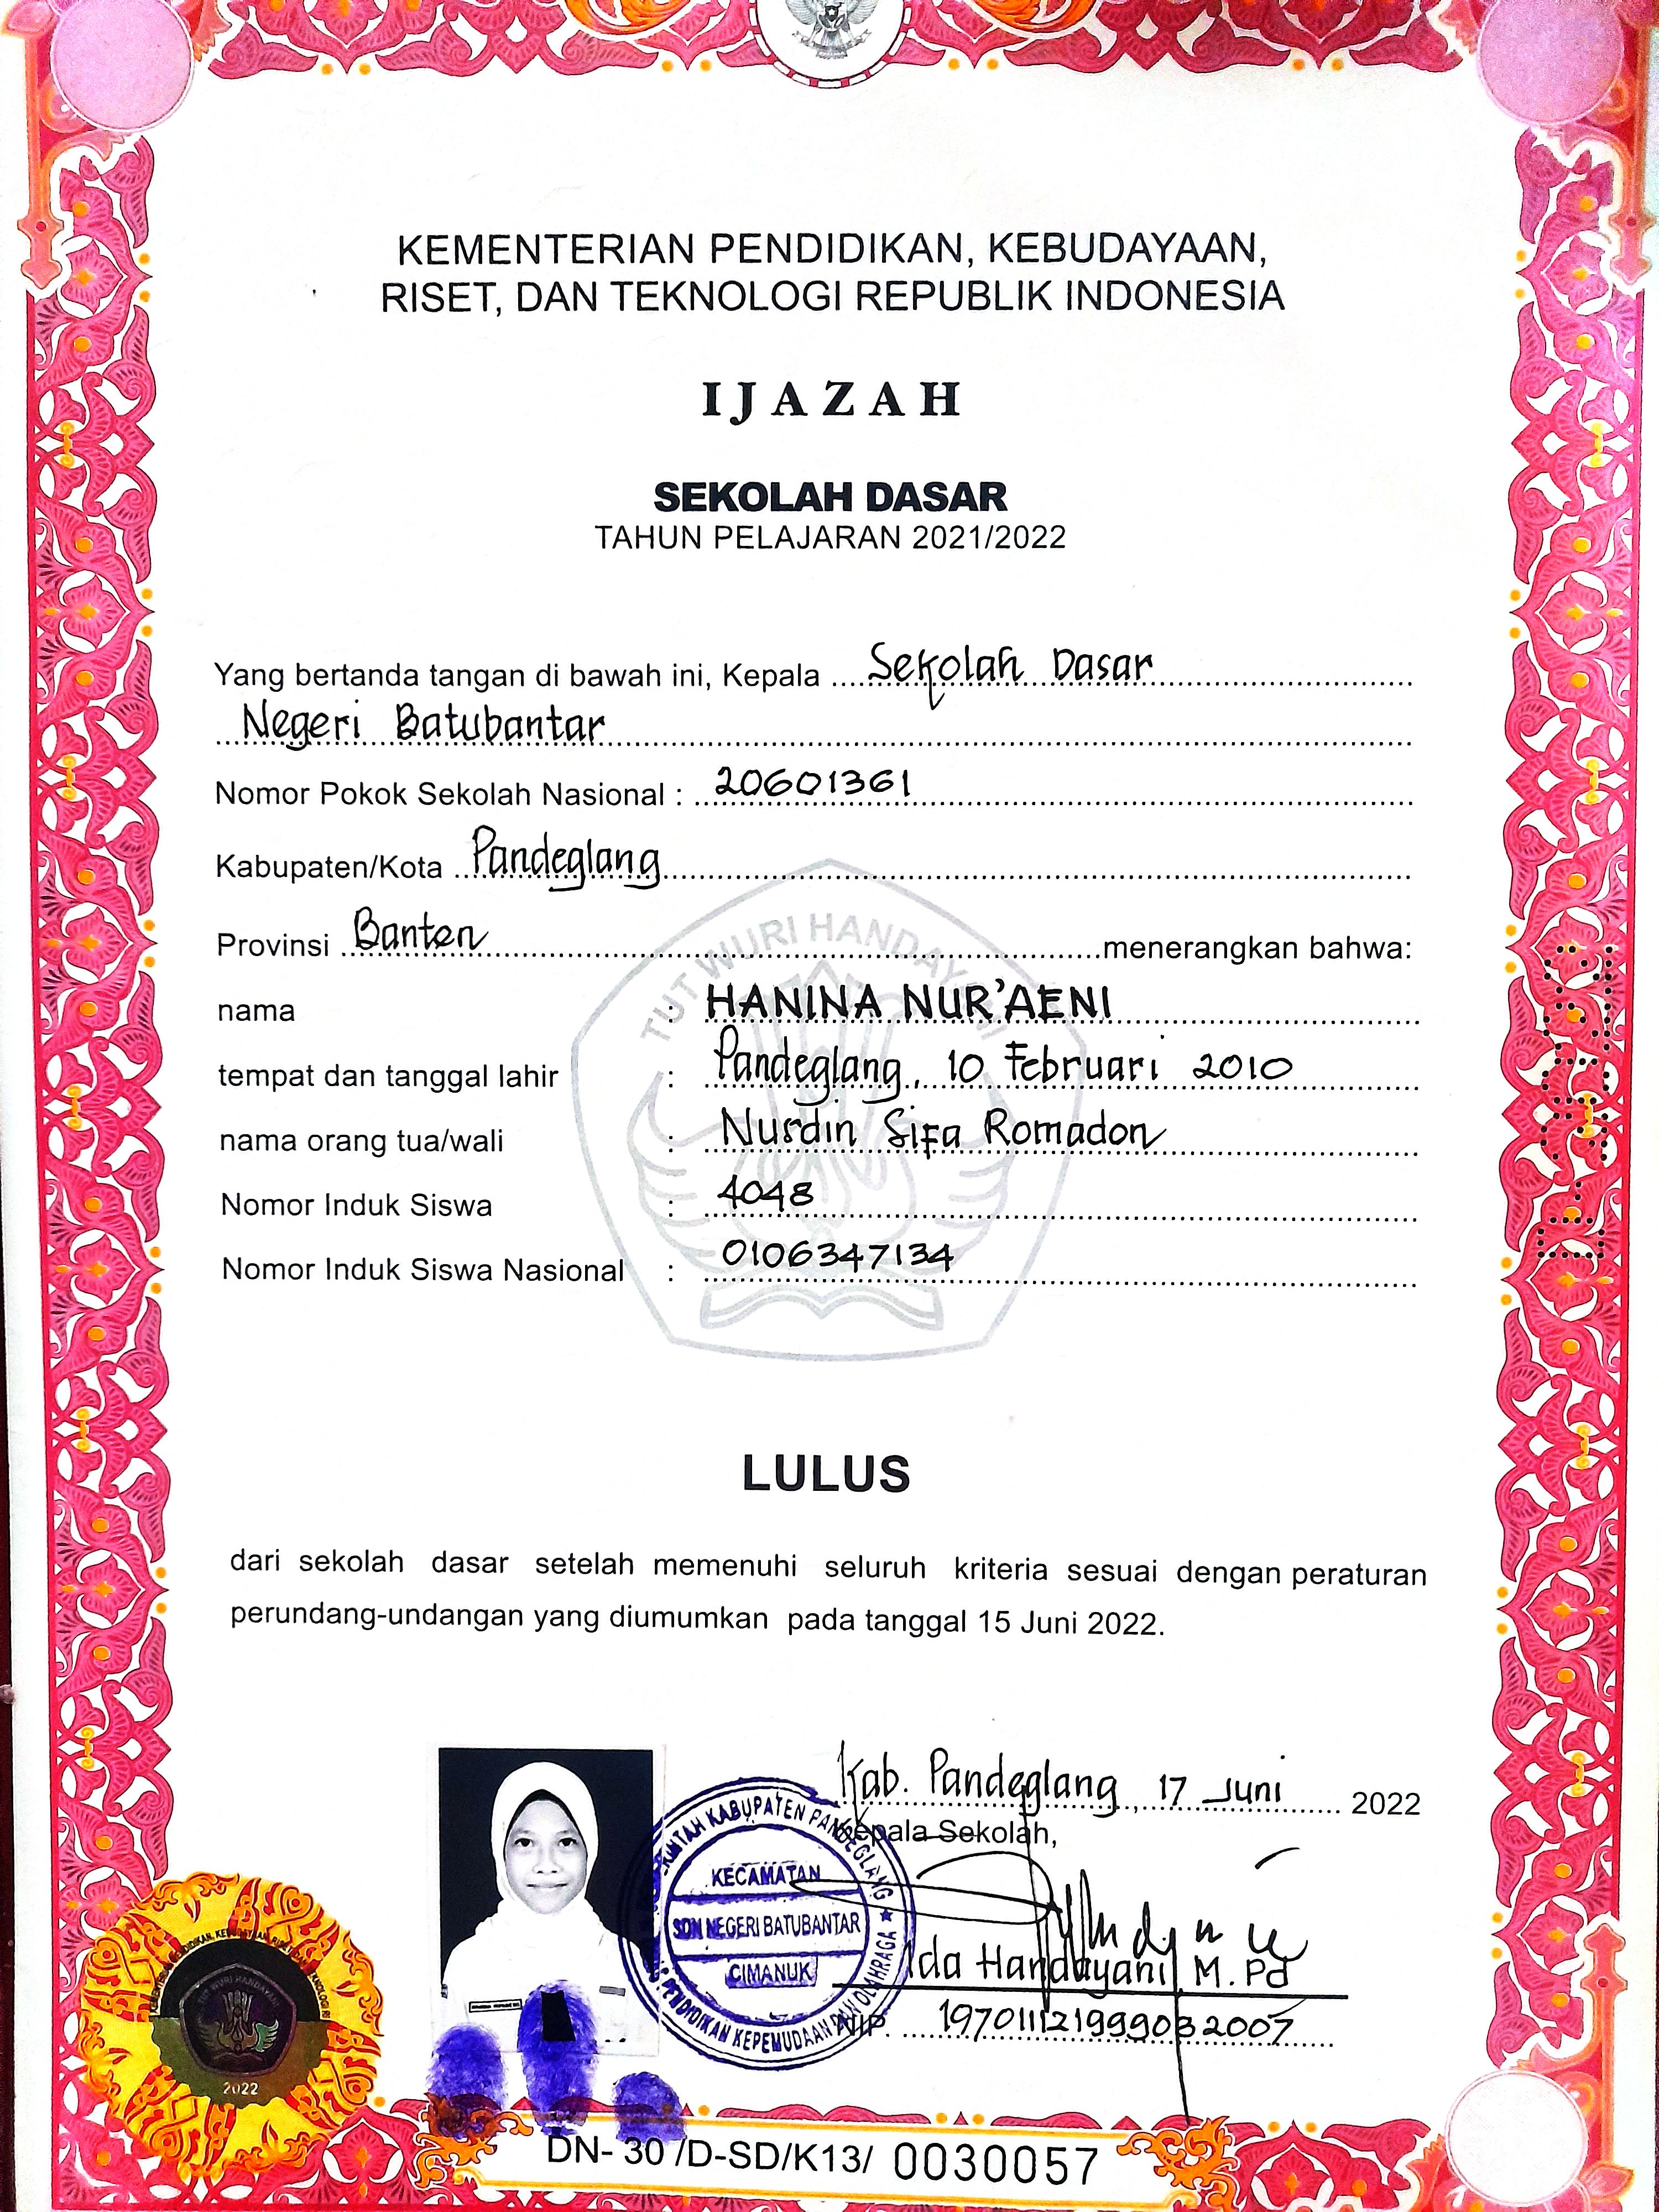 KEMENTERIAN PENDIDIKAN, KEBUDAYAAN,
RISET, DAN TEKNOLOGI REPUBLIK INDONESIA
IJAZAH
SEKOLAH DASAR
TAHUN PELAJARAN 2021/2022
Yang bertanda tangan di bawah ini, Kepala Sekolah Dasar
Negeri Batubantar
Nomor Pokok Sekolah Nasional : 20601361
Kabupaten/Kota Pandeglang
Provinsi Banten menerangkan bahwa:
TUT WURI HANDAYANI
nama : HANINA NUR'AENI
tempat dan tanggal lahir : Pandeglang, 10 Februari 2010
nama orang tua/wali : Nurdin Sifa Romadon
Nomor Induk Siswa : 4048
Nomor Induk Siswa Nasional : 0106347134
LULUS
dari sekolah dasar setelah memenuhi seluruh kriteria sesuai dengan peraturan
perundang-undangan yang diumumkan pada tanggal 15 Juni 2022.
Kab. Pandeglang, 17 Juni 2022
Kepala Sekolah,
KABUPATEN PANDEGLANG
KECAMATAN
SDN NEGERI BATUBANTAR
CIMANUK
PENDIDIKAN KEPEMUDAAN DAN OLAHRAGA
Ida Handayani, M.Pd
NIP. 197011121999032007
TUT WURI HANDAYANI
2022
DN- 30 /D-SD/K13/ 0030057